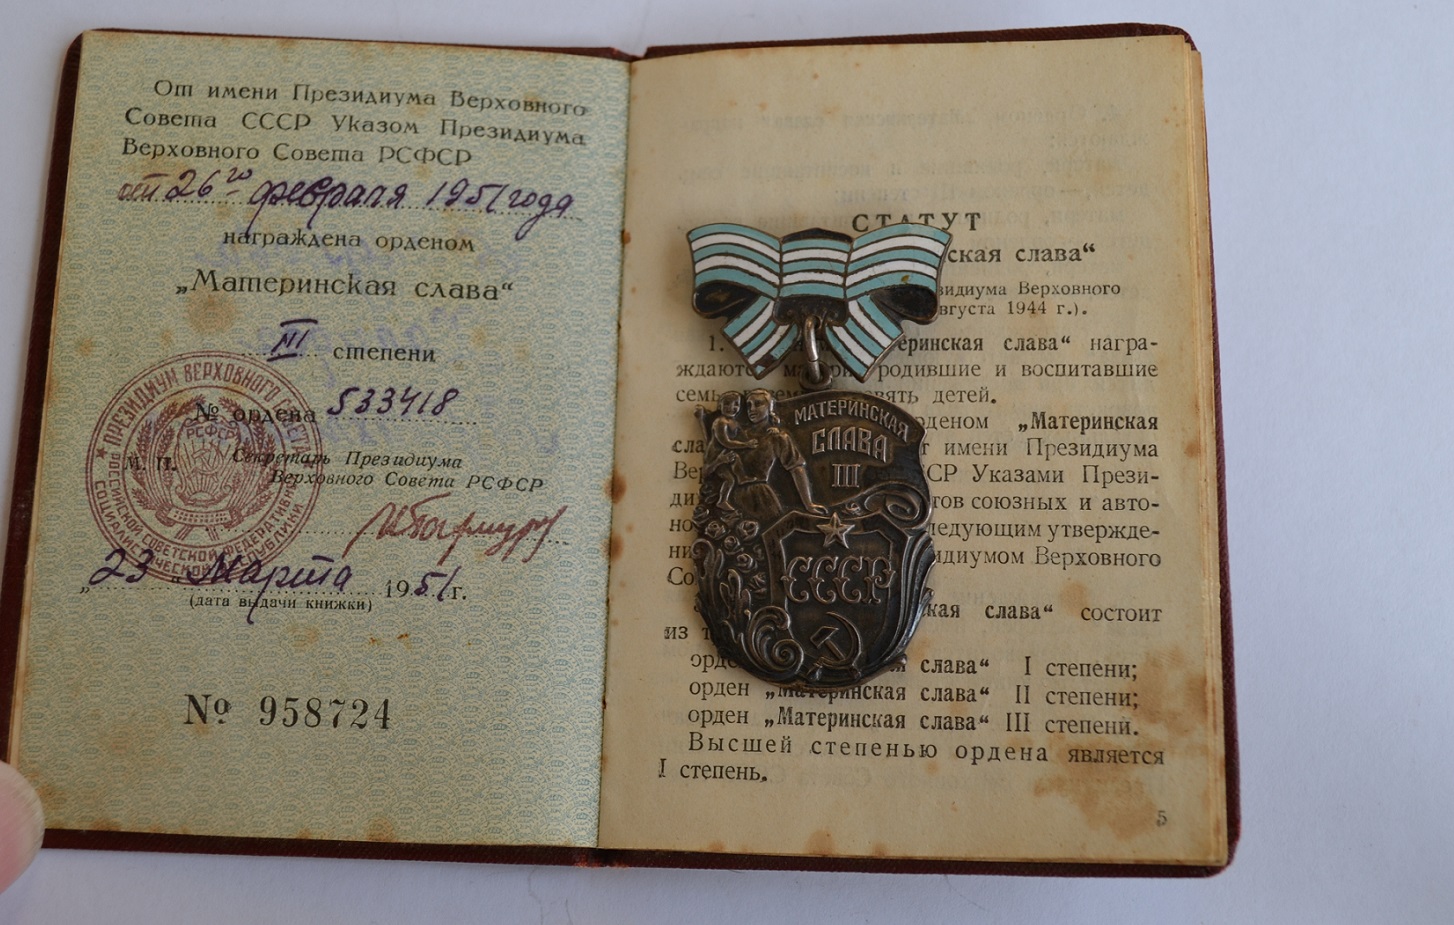 От имени Президиума Верховного
Совета СССР Указом Президиума
Верховного Совета РСФСР
от 26го февраля 1951 года
награждена орденом
„Материнская слава“
III степени
№ ордена 533418
М. П.
Секретарь Президиума
Верховного Совета РСФСР
23 Марта 1951 г.
(дата выдачи книжки)
№ 958724
ПРЕЗИДИУМ ВЕРХОВНОГО СОВЕТА
РОССИЙСКОЙ СОВЕТСКОЙ ФЕДЕРАТИВНОЙ
СОЦИАЛИСТИЧЕСКОЙ РЕСПУБЛИКИ
РСФСР
СТАТУТ
ская слава“
зидиума Верховного
вгуста 1944 г.).
1. еринская слава“ награ-
ждаются матери, родившие и воспитавшие
семь, вять детей.
орденом „Материнская
сла т имени Президиума
Вер СР Указами Прези-
ди тов союзных и авто-
но ледующим утвержде-
ни идиумом Верховного
Со
кая слава“ состоит
из т
орде слава“ I степени;
орден „Материнская слава“ II степени;
орден „Материнская слава“ III степени.
Высшей степенью ордена является
I степень.
5
МАТЕРИНСКАЯ
СЛАВА
III
СССР